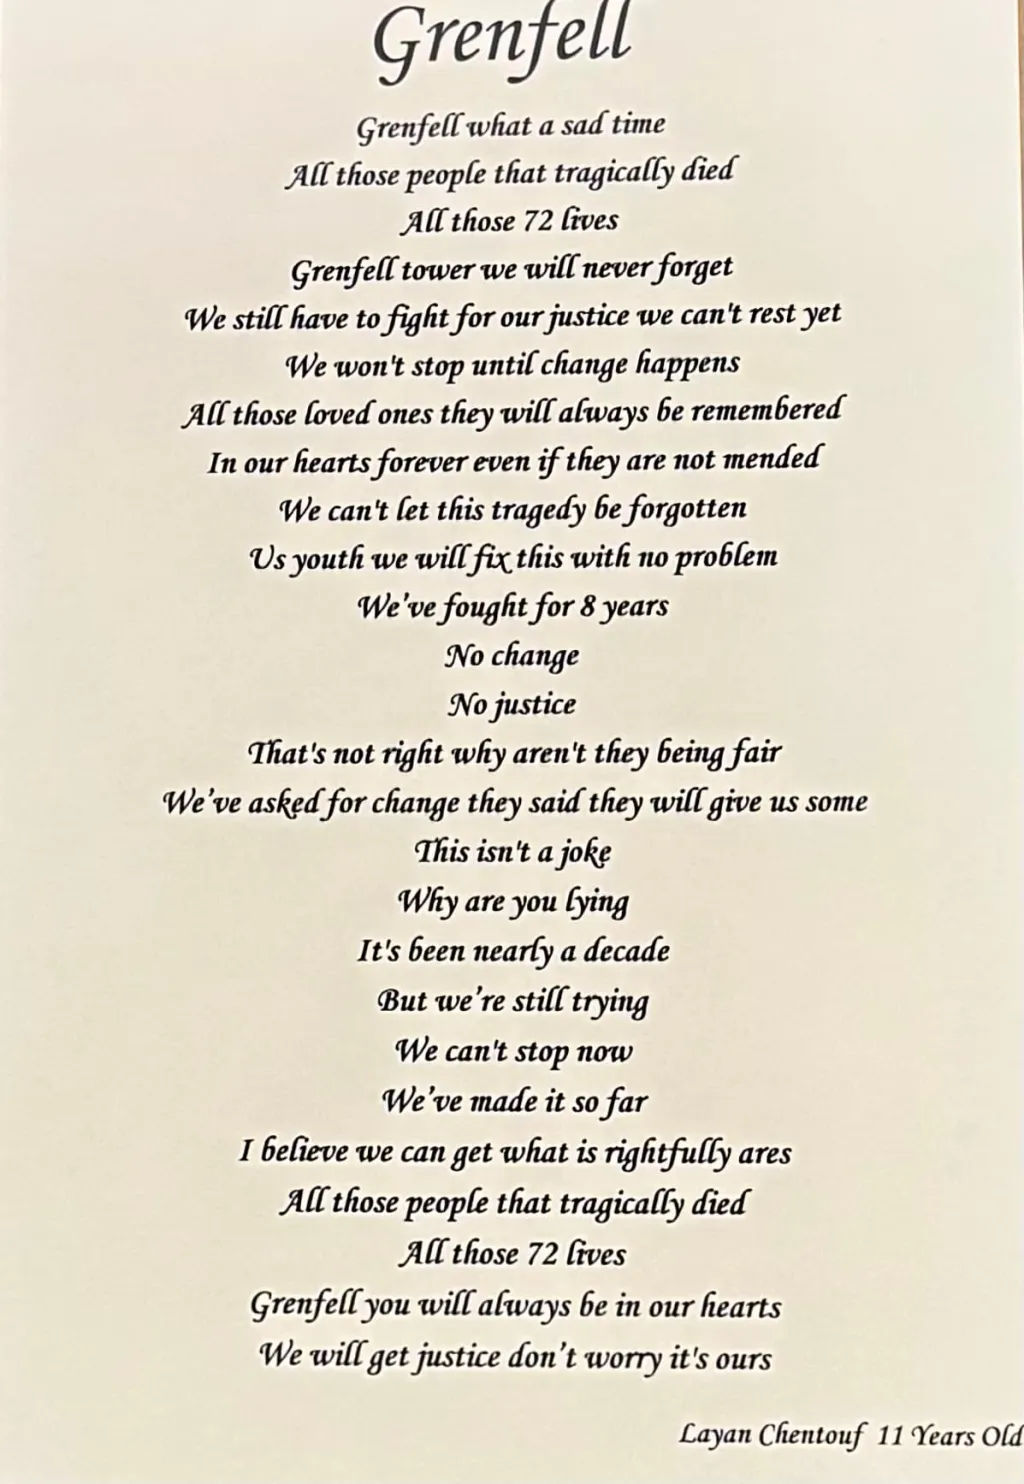 Grenfell
Grenfell what a sad time
All those people that tragically died
All those 72 lives
Grenfell tower we will never forget
We still have to fight for our justice we can't rest yet
We won't stop until change happens
All those loved ones they will always be remembered
In our hearts forever even if they are not mended
We can't let this tragedy be forgotten
Us youth we will fix this with no problem
We've fought for 8 years
No change
No justice
That's not right why aren't they being fair
We've asked for change they said they will give us some
This isn't a joke
Why are you lying
It's been nearly a decade
But we're still trying
We can't stop now
We've made it so far
I believe we can get what is rightfully ares
All those people that tragically died
All those 72 lives
Grenfell you will always be in our hearts
We will get justice don't worry it's ours
Layan Chentouf 11 Years Old